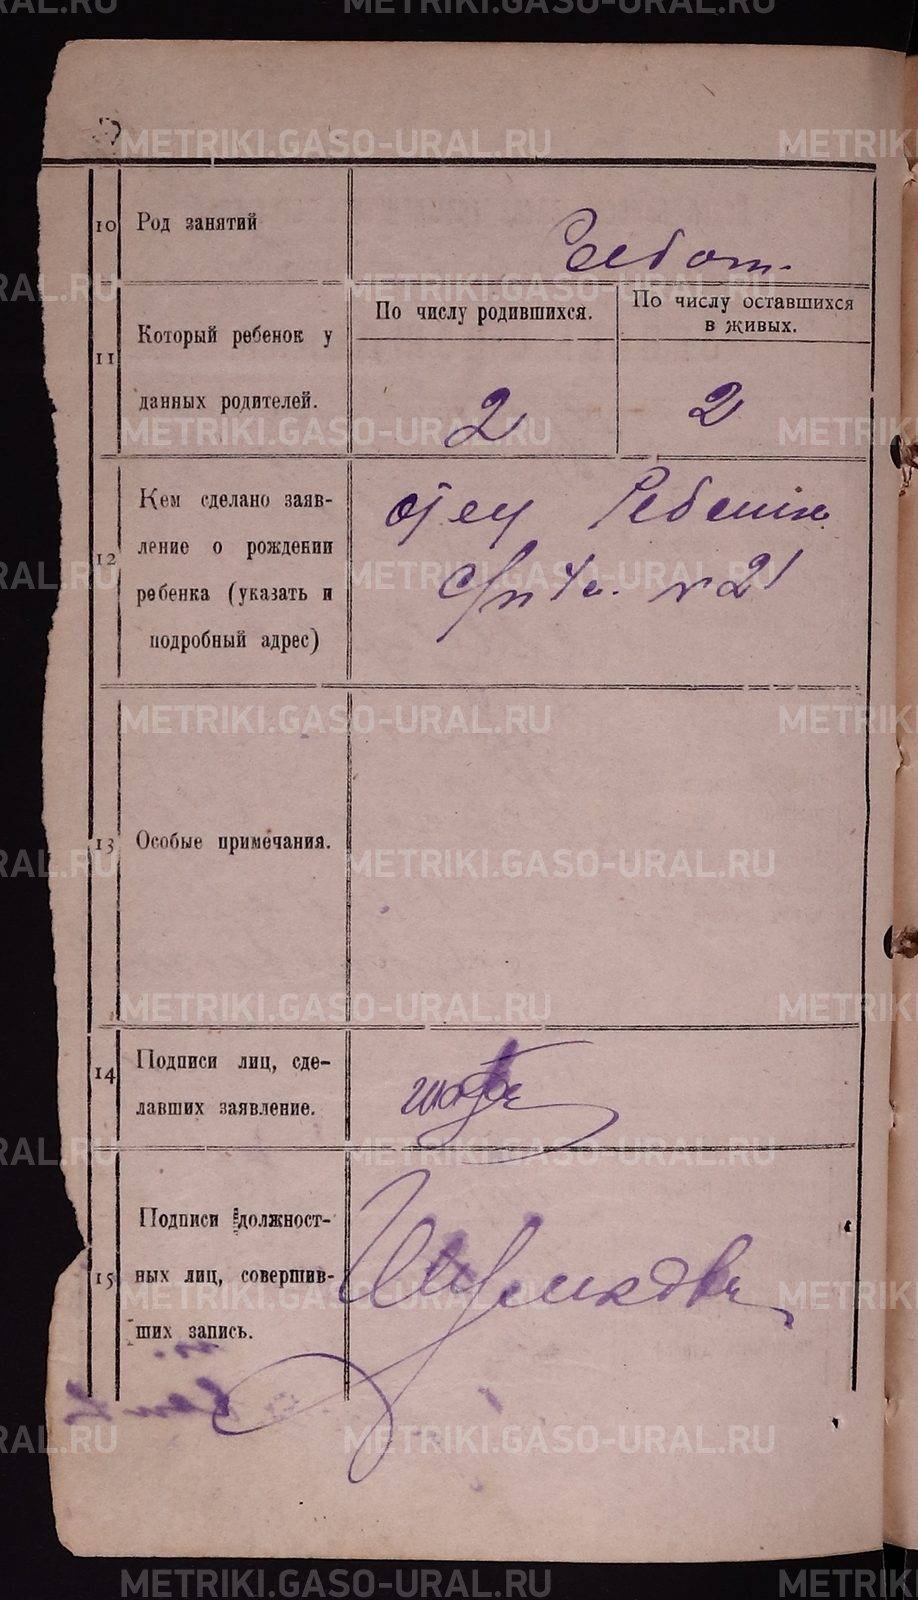 10 Род занятий
11 Который ребенок у
данных родителей.
По числу родившихся.
По числу оставшихся
в живых.
2
2
12 Кем сделано заяв-
ление о рождении
ребенка (указать и
подробный адрес)
отец Ребенка
№ 21
13 Особые примечания.
14 Подписи лиц, сде-
лавших заявление.
15 Подписи должност-
ных лиц, совершив-
ших запись.
METRIKI.GASO-URAL.RU